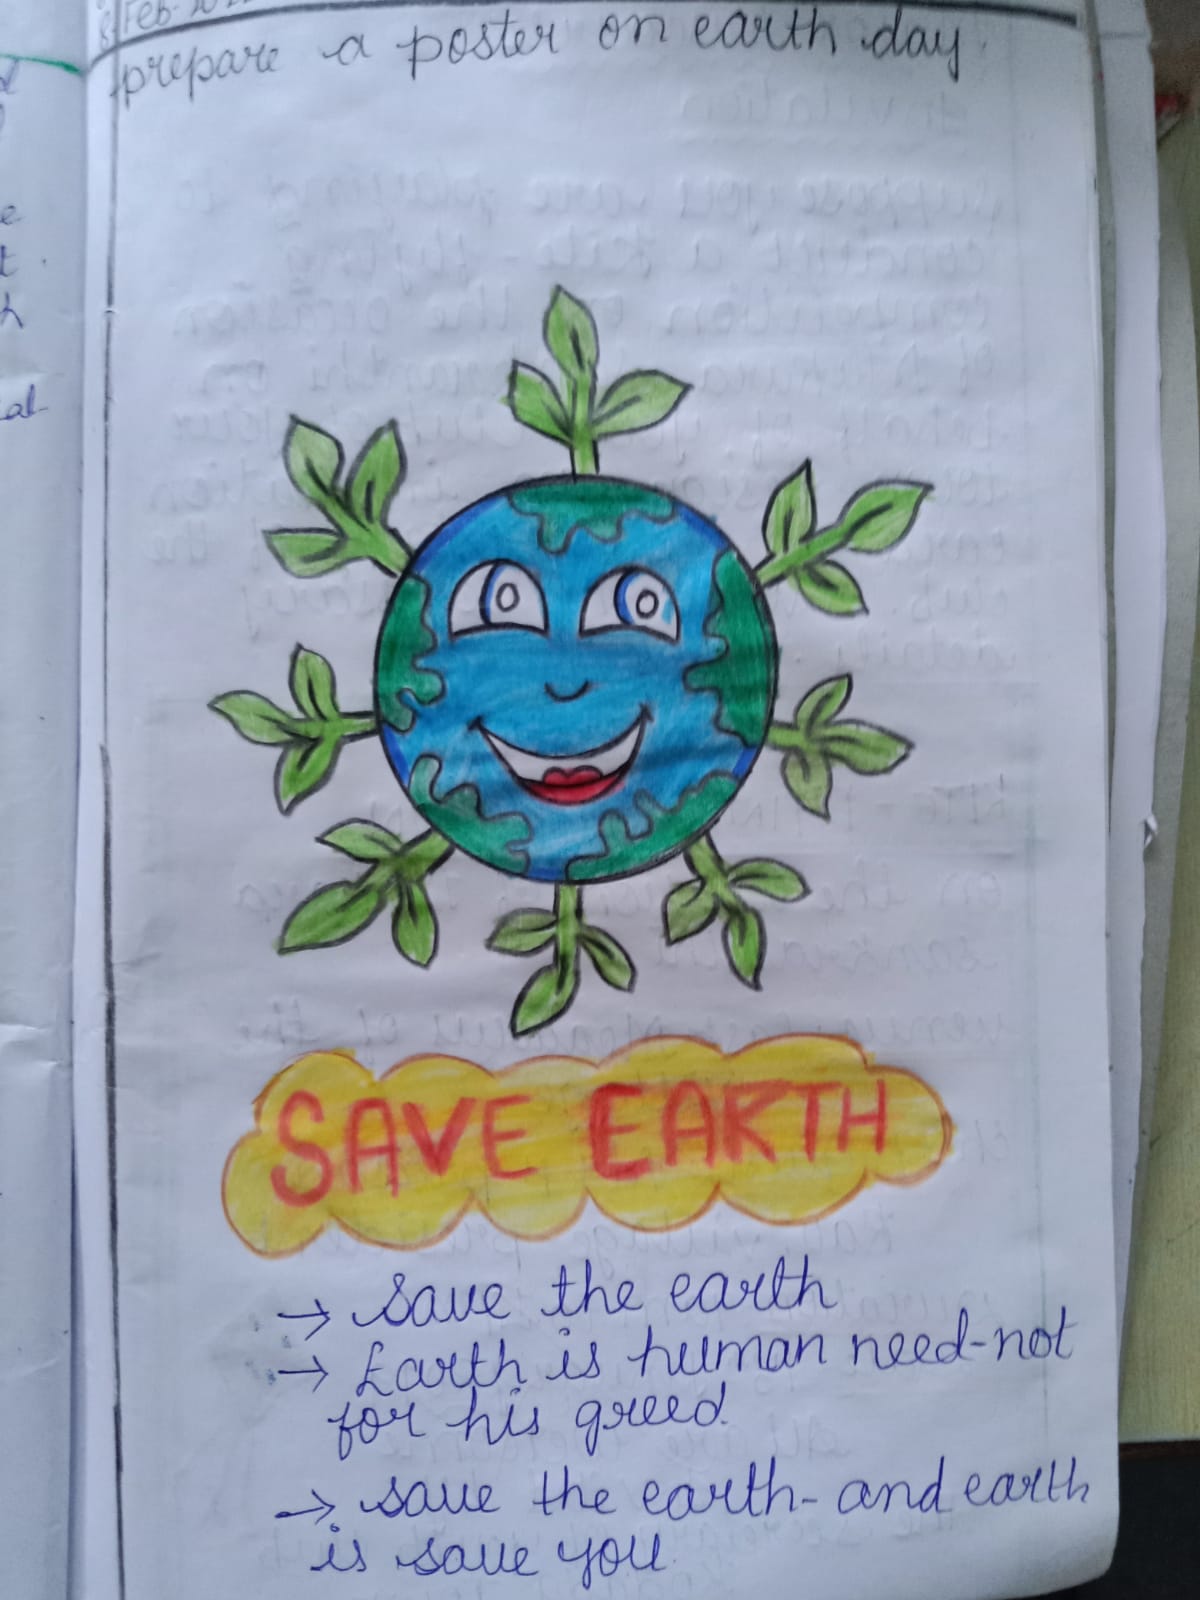 Feb-
prepare a poster on earth day.
SAVE EARTH
→ save the earth
→ Earth is human need-not
for his greed.
→ save the earth- and earth
is save you.